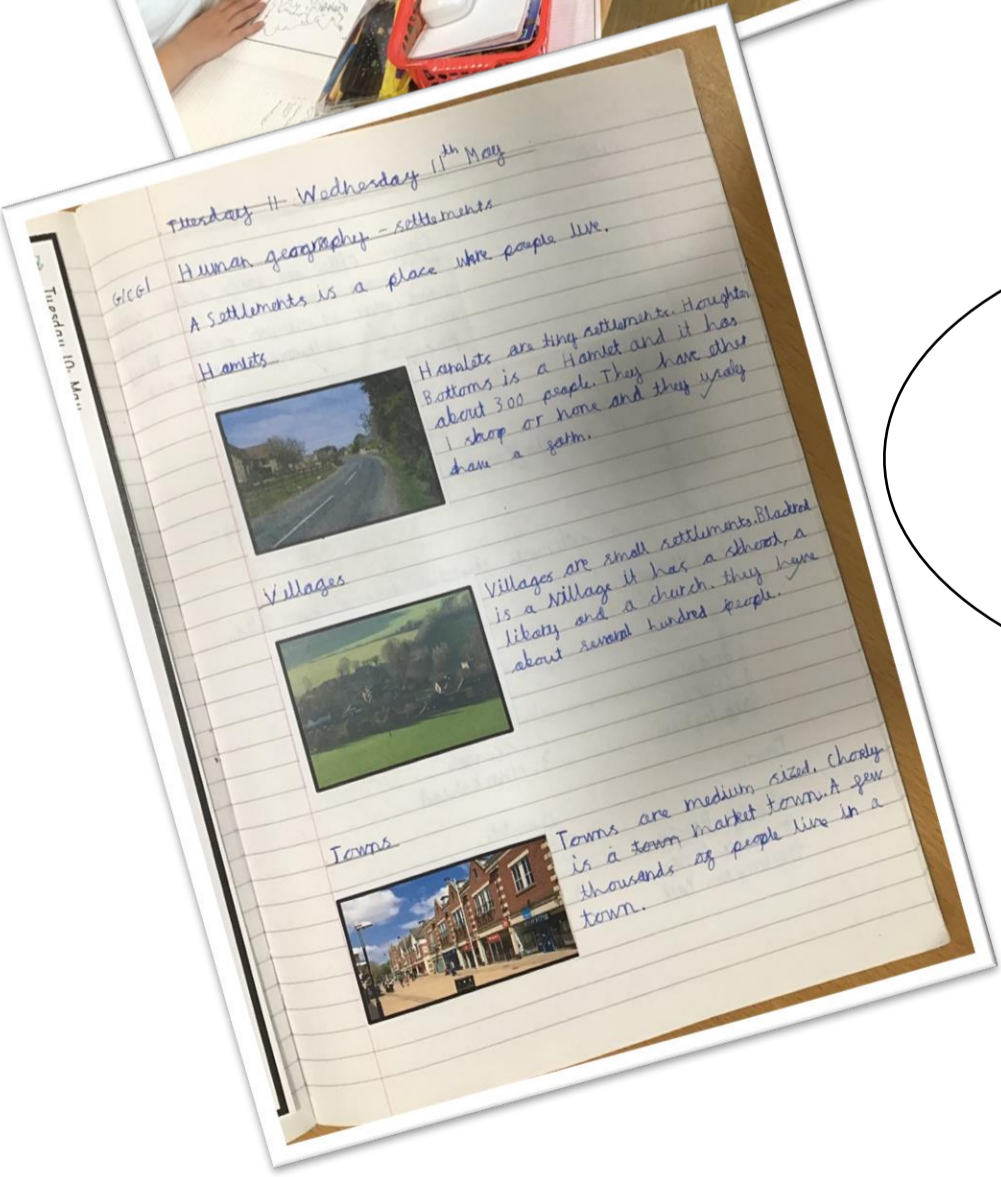 Tuesday 11 Wednesday 11th May
Human geography - settlements
GICGI
A settlements is a place where people live.
Hamlets
Hamlets are tiny settlements. Houghton
Bottoms is a Hamlet and it has
about 300 people. They have ether
1 shop or none and they usaly
have a farm.
Villages
Villages are small settlements. Blackrod
is a Village it has a school, a
libary and a church. they have
about several hundred people.
Towns
Towns are medium sized. Chorly
is a town market town. A few
thousands of people live in a
town.
Tuesday 10. May